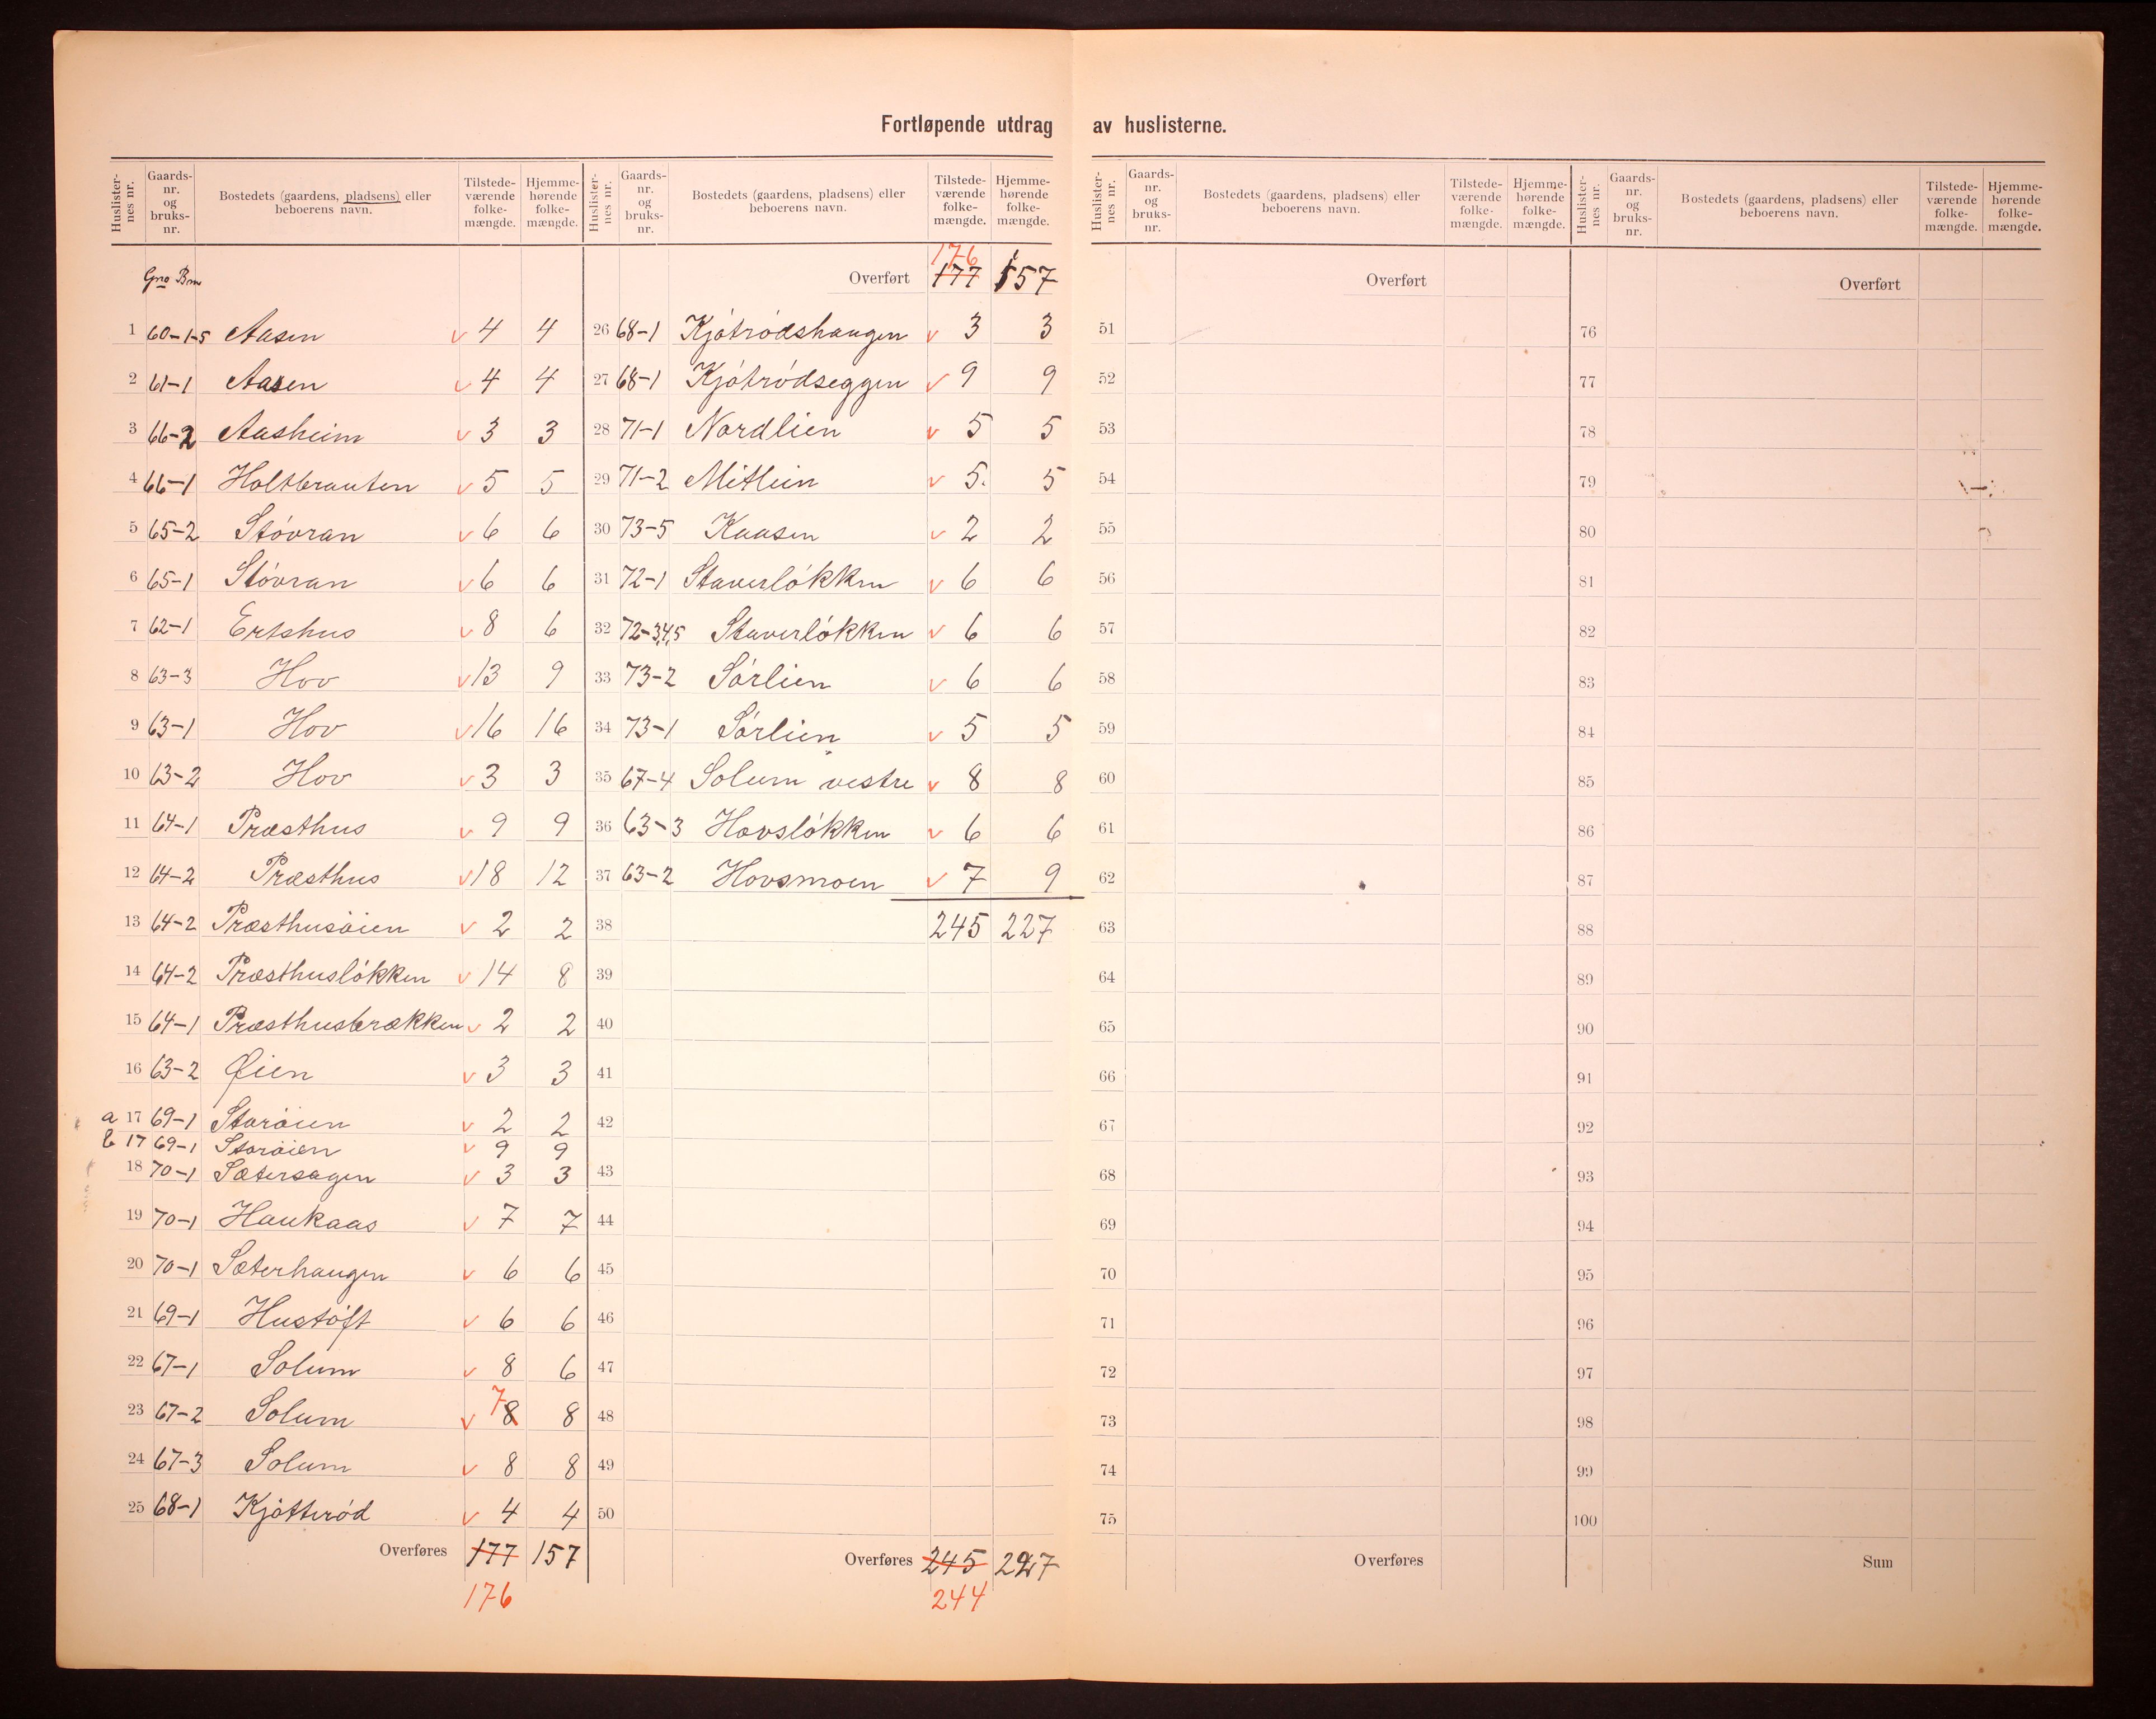 Fortløpende utdrag av huslisterne.
Huslister-nes nr. Gaards-nr. og bruks-nr. Bostedets (gaardens, pladsens) eller beboerens navn. Tilstede-værende folke-mængde. Hjemme-hørende folke-mængde.
Gno Bno
1 60-1-5 Aasen v 4 4
2 61-1 Aasen v 4 4
3 66-2 Aasheim v 3 3
4 66-1 Holtbrauten v 5 5
5 65-2 Stövran v 6 6
6 65-1 Stövran v 6 6
7 62-1 Ertshus v 8 6
8 63-3 Hov v 13 9
9 63-1 Hov v 16 16
10 63-2 Hov v 3 3
11 64-1 Præsthus v 9 9
12 64-2 Præsthus v 18 12
13 64-2 Præsthusöien v 2 2
14 64-2 Præsthuslökken v 14 8
15 64-1 Præsthusbrækken v 2 2
16 63-2 Øien v 3 3
a 17 69-1 Storöien v 2 2
b 17 69-1 Storöien v 9 9
18 70-1 Sætersagen v 3 3
19 70-1 Haukaas v 7 7
20 70-1 Sæterhaugen v 6 6
21 69-1 Hustöft v 6 6
22 67-1 Solum v 8 6
23 67-2 Solum v 7 8 8
24 67-3 Solum v 8 8
25 68-1 Kjötteröd v 4 4
Overføres 177 157
176
Huslister-nes nr. Gaards-nr. og bruks-nr. Bostedets (gaardens, pladsens) eller beboerens navn. Tilstede-værende folke-mængde. Hjemme-hørende folke-mængde.
176
Overført 177 157
26 68-1 Kjötrödshaugen v 3 3
27 68-1 Kjötrödseggen v 9 9
28 71-1 Nordlien v 5 5
29 71-2 Mitlien v 5. 5
30 73-5 Kaasen v 2 2
31 72-1 Staverlökken v 6 6
32 72-3,4,5 Staverlökken v 6 6
33 73-2 Sörlien v 6 6
34 73-1 Sörlien v 5 5
35 67-4 Solum vestre v 8 8
36 63-3 Hovslökken v 6 6
37 63-2 Hovsmoen v 7 9
38 245 227
39
40
41
42
43
44
45
46
47
48
49
50
Overføres 245 227
244
Huslister-nes nr. Gaards-nr. og bruks-nr. Bostedets (gaardens, pladsens) eller beboerens navn. Tilstede-værende folke-mængde. Hjemme-hørende folke-mængde.
Overført
51
52
53
54
55
56
57
58
59
60
61
62
63
64
65
66
67
68
69
70
71
72
73
74
75
Overføres
Huslister-nes nr. Gaards-nr. og bruks-nr. Bostedets (gaardens, pladsens) eller beboerens navn. Tilstede-værende folke-mængde. Hjemme-hørende folke-mængde.
Overført
76
77
78
79
80
81
82
83
84
85
86
87
88
89
90
91
92
93
94
95
96
97
98
99
100
Sum